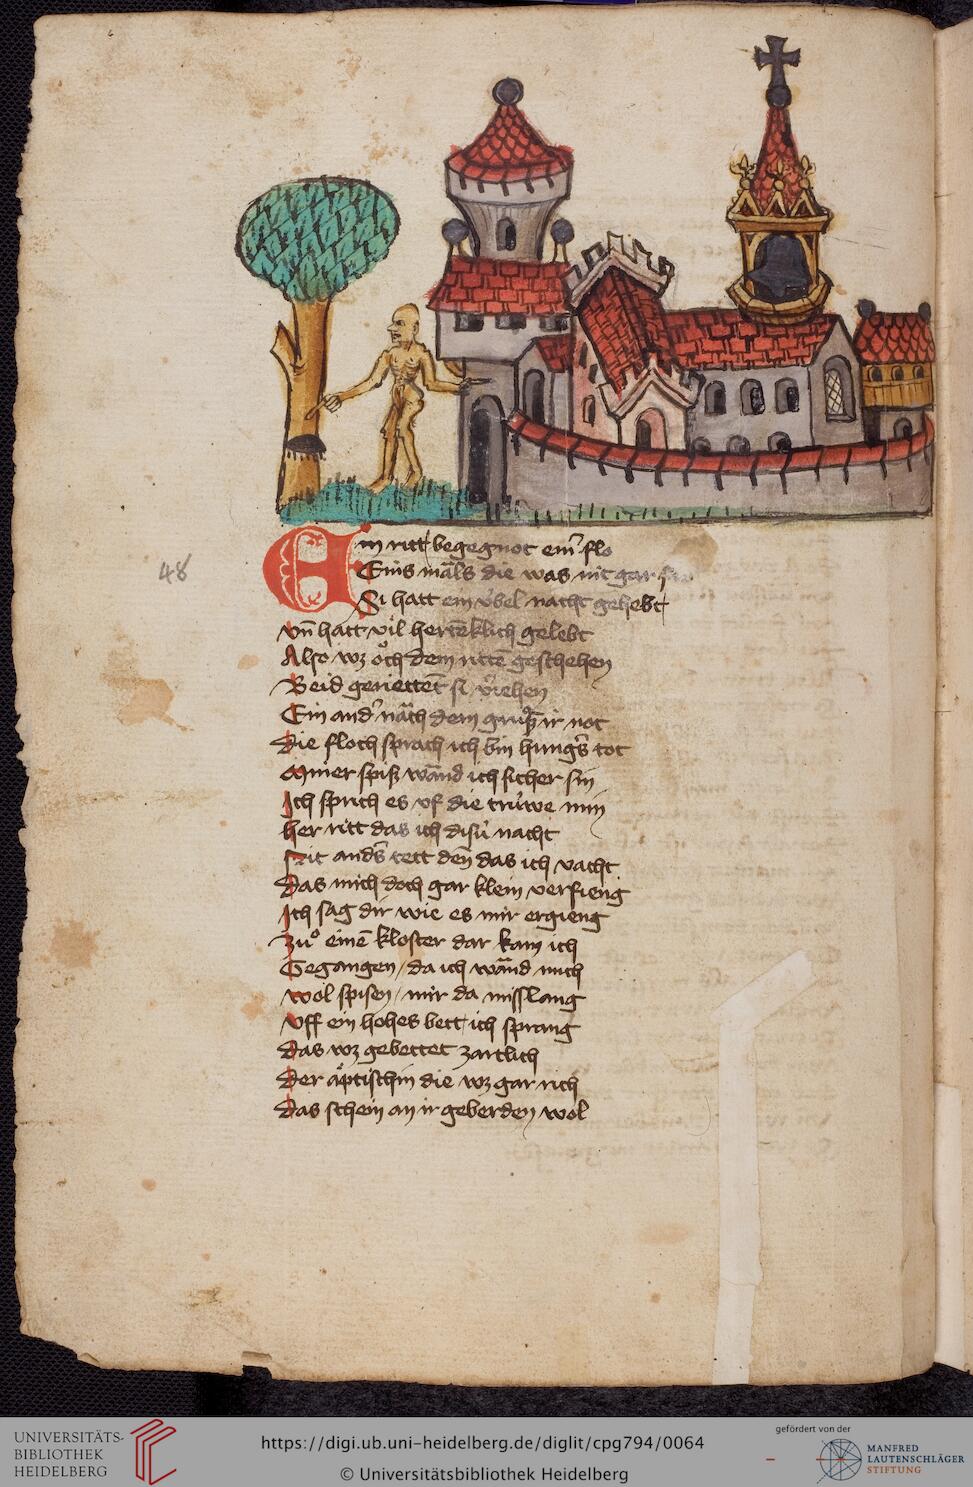 Ein ritt begegnot eim̄ flo
Eins māls die was nit gar
Si hatt ein v̓bel nacht gehebt
48
vn̄ hatt vil hertēklich gelebt
Also wz öch dem rittē geschehen
Beid geriettēt si v̓iehen
Ein and̓ nāch dem gruͦß ir not
die floch sprach ich bin hung̓s tot
Miner spiß wānd ich sicher sin
Ich sprich es vf die trüwe min
her ritt das ich disü nacht
Nit and̓s tett dēn das ich vacht
Das mich doch gar klein verfieng
Ich sag dir wie es mir ergieng
Zuͦ einē kloster dar kam ich
Gegangen / da ich wānd mich
wol spisen / mir da misslang
vff ein hohes bett ich sprang
Das wz gebettet zartlich
Der äptischin die wz gar rich
Das schein an ir geberden wol
UNIVERSITÄTS-
BIBLIOTHEK
HEIDELBERG
https://digi.ub.uni-heidelberg.de/diglit/cpg794/0064
© Universitätsbibliothek Heidelberg
gefördert von der
MANFRED
LAUTENSCHLÄGER
STIFTUNG